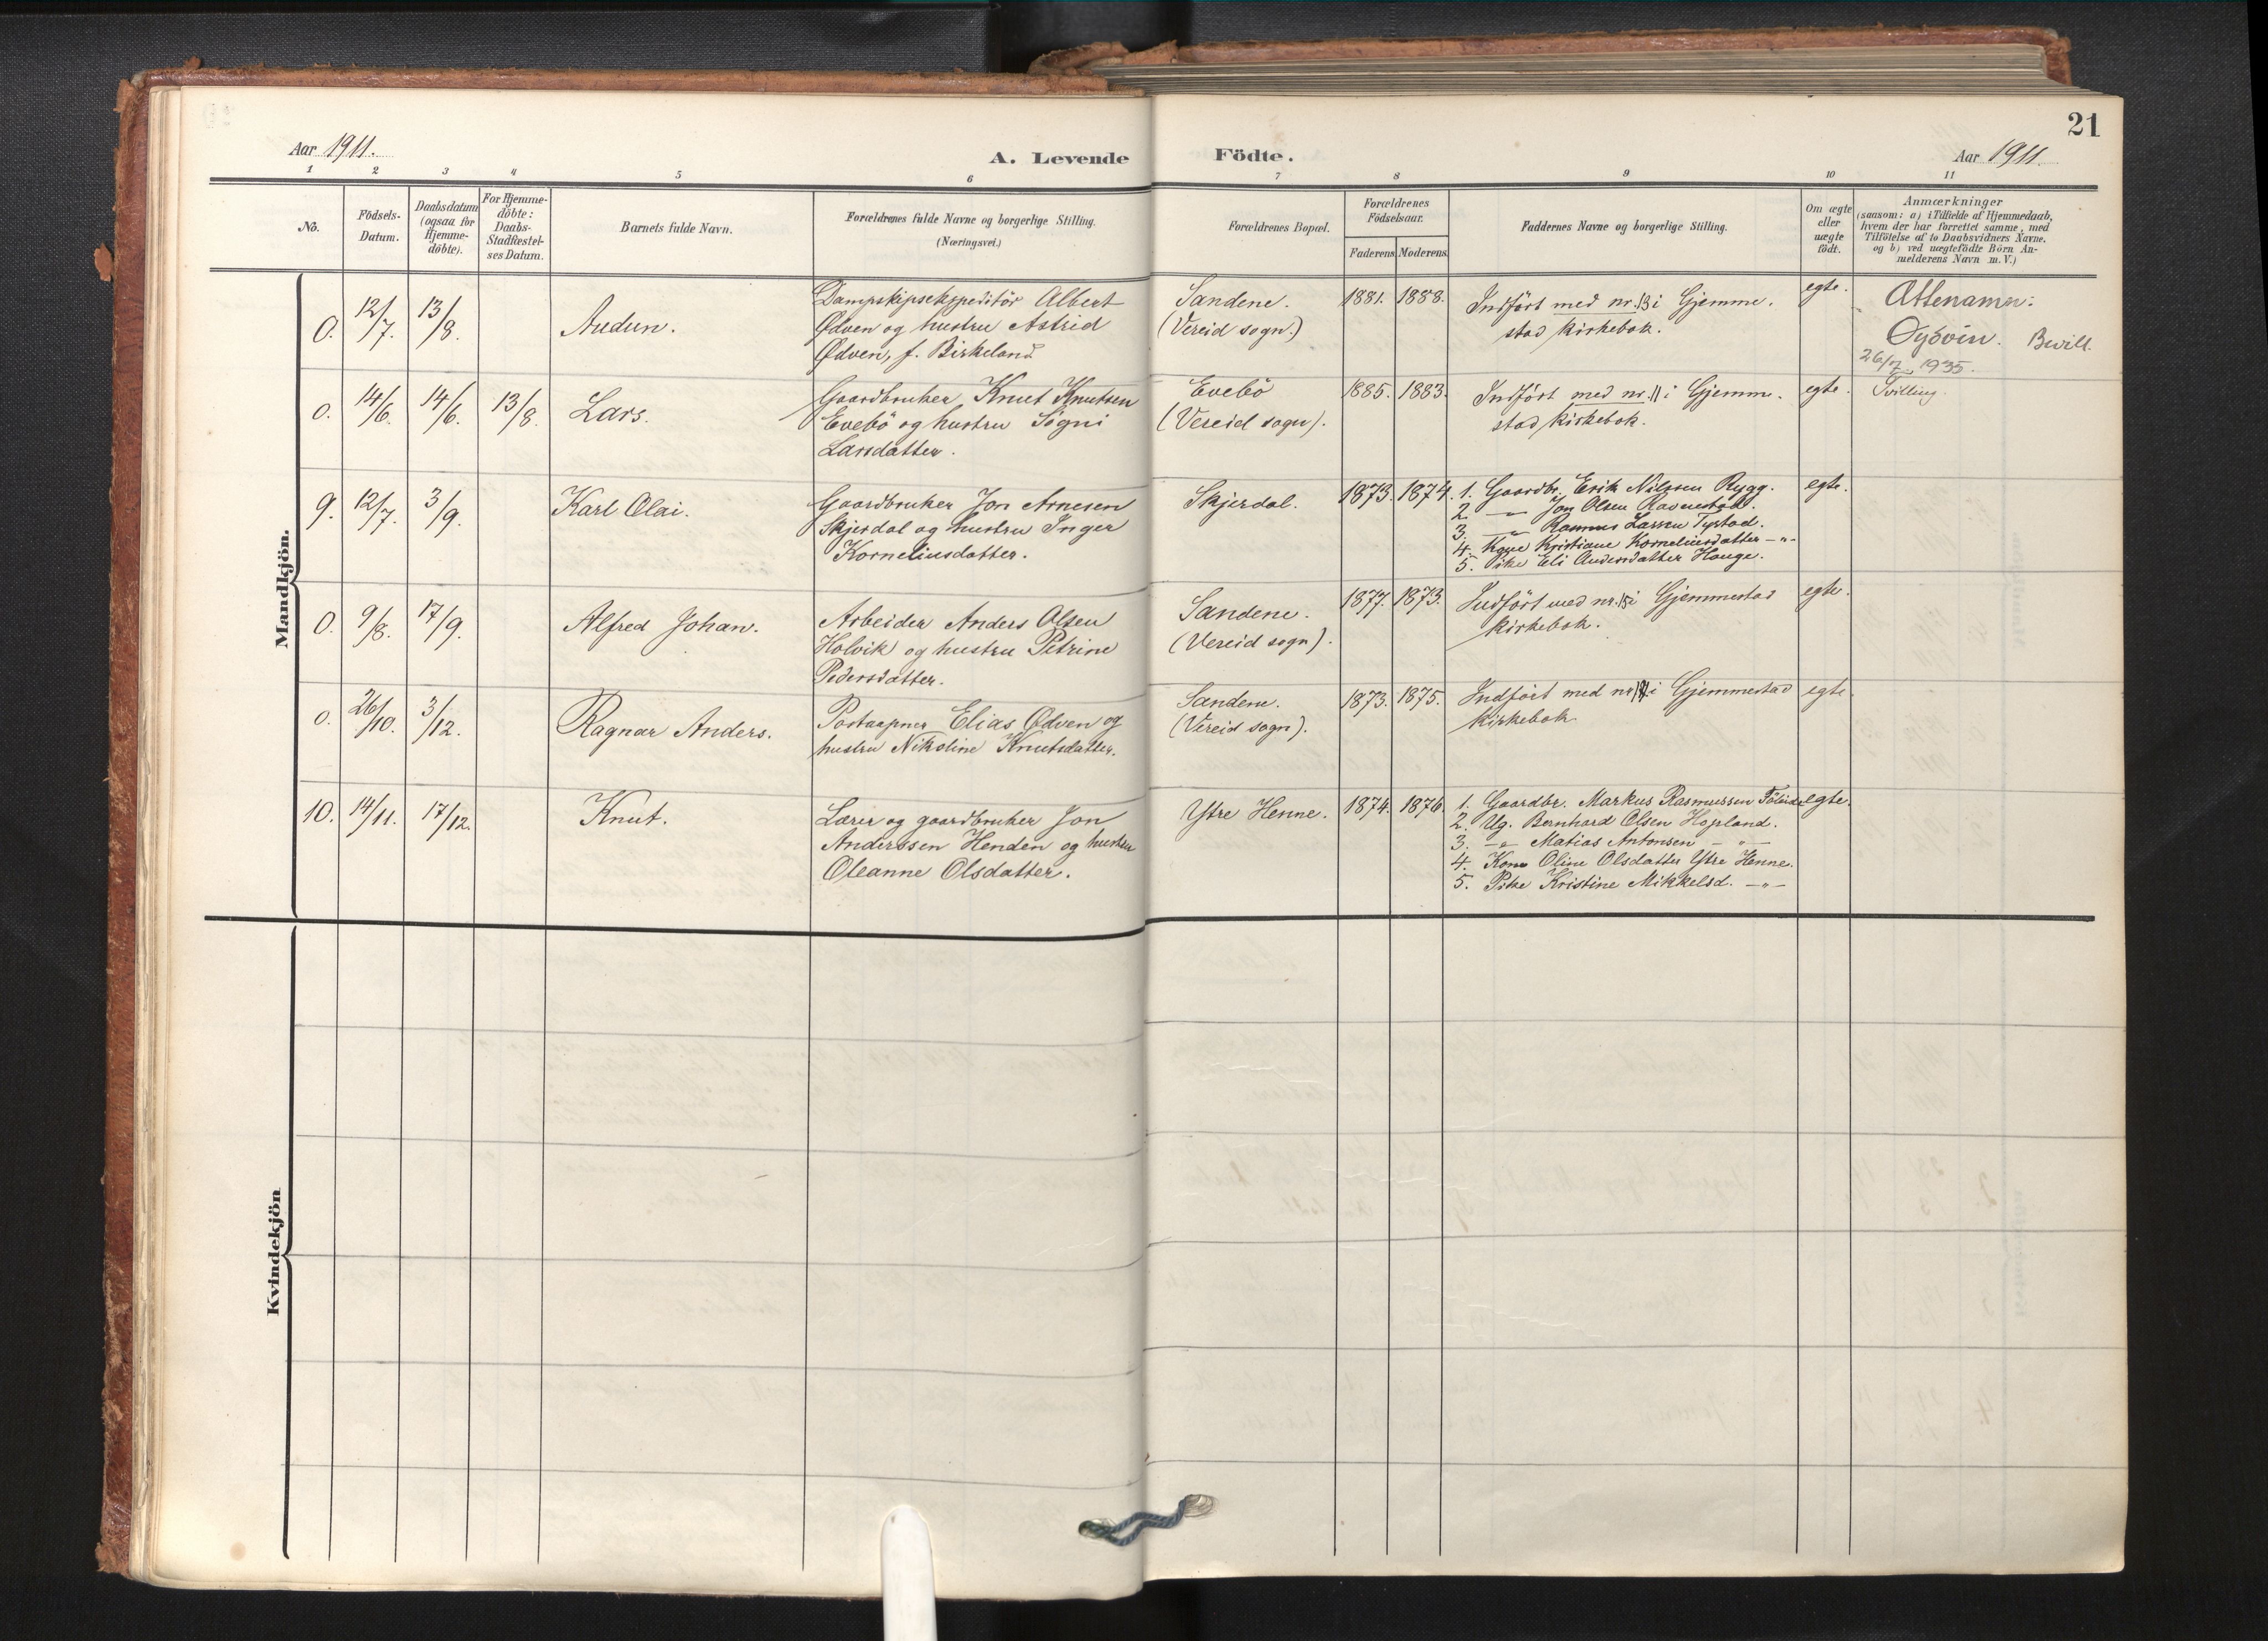 21
Aar 1911.
A. Levende Födte.
Aar 1911.
1 2 3 4 5 6 7 8 9 10 11
No.
Födsels-
Datum.
Daabsdatum
(ogsaa for
Hjemme-
döbte).
For Hjemme-
döbte:
Daabs-
Stadfæstel-
ses Datum.
Barnets fulde Navn.
Forældrenes fulde Navne og borgerlige Stilling.
(Næringsvei.)
Forældrenes Bopæl.
Forældrenes
Födselsaar.
Faderens Moderens
Faddernes Navne og borgerlige Stilling.
Om ægte
eller
uægte
födt.
Anmærkninger
(saasom: a) i Tilfælde af Hjemmedaab,
hvem der har forrettet samme, med
Tilföielse af to Daabsvidners Navne,
og b) ved uægtefödte Börn An-
melderens Navn m. V.)
Mandkjön.
0. 12/7. 13/8.
Audun.
Dampskipsekspeditör Albert
Ødven og hustru Astrid
Ødven, f. Birkeland
Sandene.
(Vereid sogn.)
1881. 1888.
Indfört med nr. 13 i Gjemme-
stad kirkebok.
egte.
Ættenamn:
Øyövin. Bevill.
26/7 1935.
0. 14/6. 14/6. 13/8.
Lars.
Gaardbruker Knut Knutsen
Evebö og hustru Sögni
Larsdatter.
Evebö
(Vereid sogn).
1885. 1883.
Indfört med nr. 11 i Gjemme-
stad kirkebok.
egte.
Tvilling.
9. 12/7. 3/9.
Karl Olai.
Gaardbruker Jon Arnesen
Skjerdal og hustru Inger
Korneliusdatter.
Skjerdal.
1873. 1874.
1. Gaardbr. Erik Nilssen Rygg.
2. —"— Jon Olsen Ravnestad.
3. —"— Rasmus Larsen Tystad.
4. Kone Kristiane Korneliusdatter —"—
5. Pike Eli Andersdatter Hauge.
egte.
0. 9/8. 17/9.
Alfred Johan.
Arbeider Anders Olsen
Holvik og hustru Petrine
Pedersdatter.
Sandene.
(Vereid sogn).
1877. 1873.
Indfört med nr. 15 i Gjemmestad
kirkebok.
egte.
0. 26/10. 3/12.
Ragnar Anders.
Postaapner Elias Ødven og
hustru Nikoline Knutsdatter.
Sandene.
(Vereid sogn).
1873. 1875.
Indfört med nr. i Gjemmestad
kirkebok.
egte.
10. 14/11. 17/12.
Knut.
Lærer og gaardbruker Jon
Anderssen Henden og hustru
Oleanne Olsdatter.
Ytre Henne.
1874. 1876.
1. Gaardbr. Markus Rasmussen
2. Ug. Bernhard Olsen Hopland.
3. —"— Matias Antonsen —"—
4. Kone Oline Olsdatter Ytre Henne.
5. Pike Kristine Mikkelsd. —"—
egte.
Kvindekjön